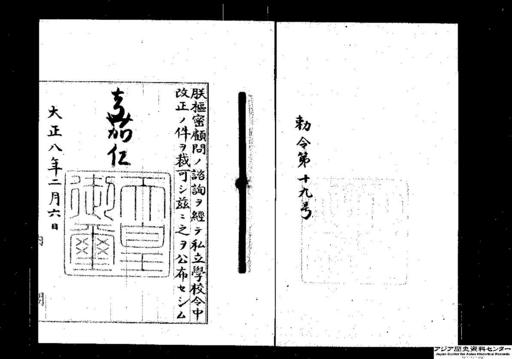 勅令第十九号
朕枢密顧問ノ諮詢ヲ経テ私立学校令中
改正ノ件ヲ裁可シ茲ニ之ヲ公布セシム
嘉仁
天皇
御璽
大正八年二月六日
内閣
アジア歴史資料センター
Japan Center for Asian Historical Records